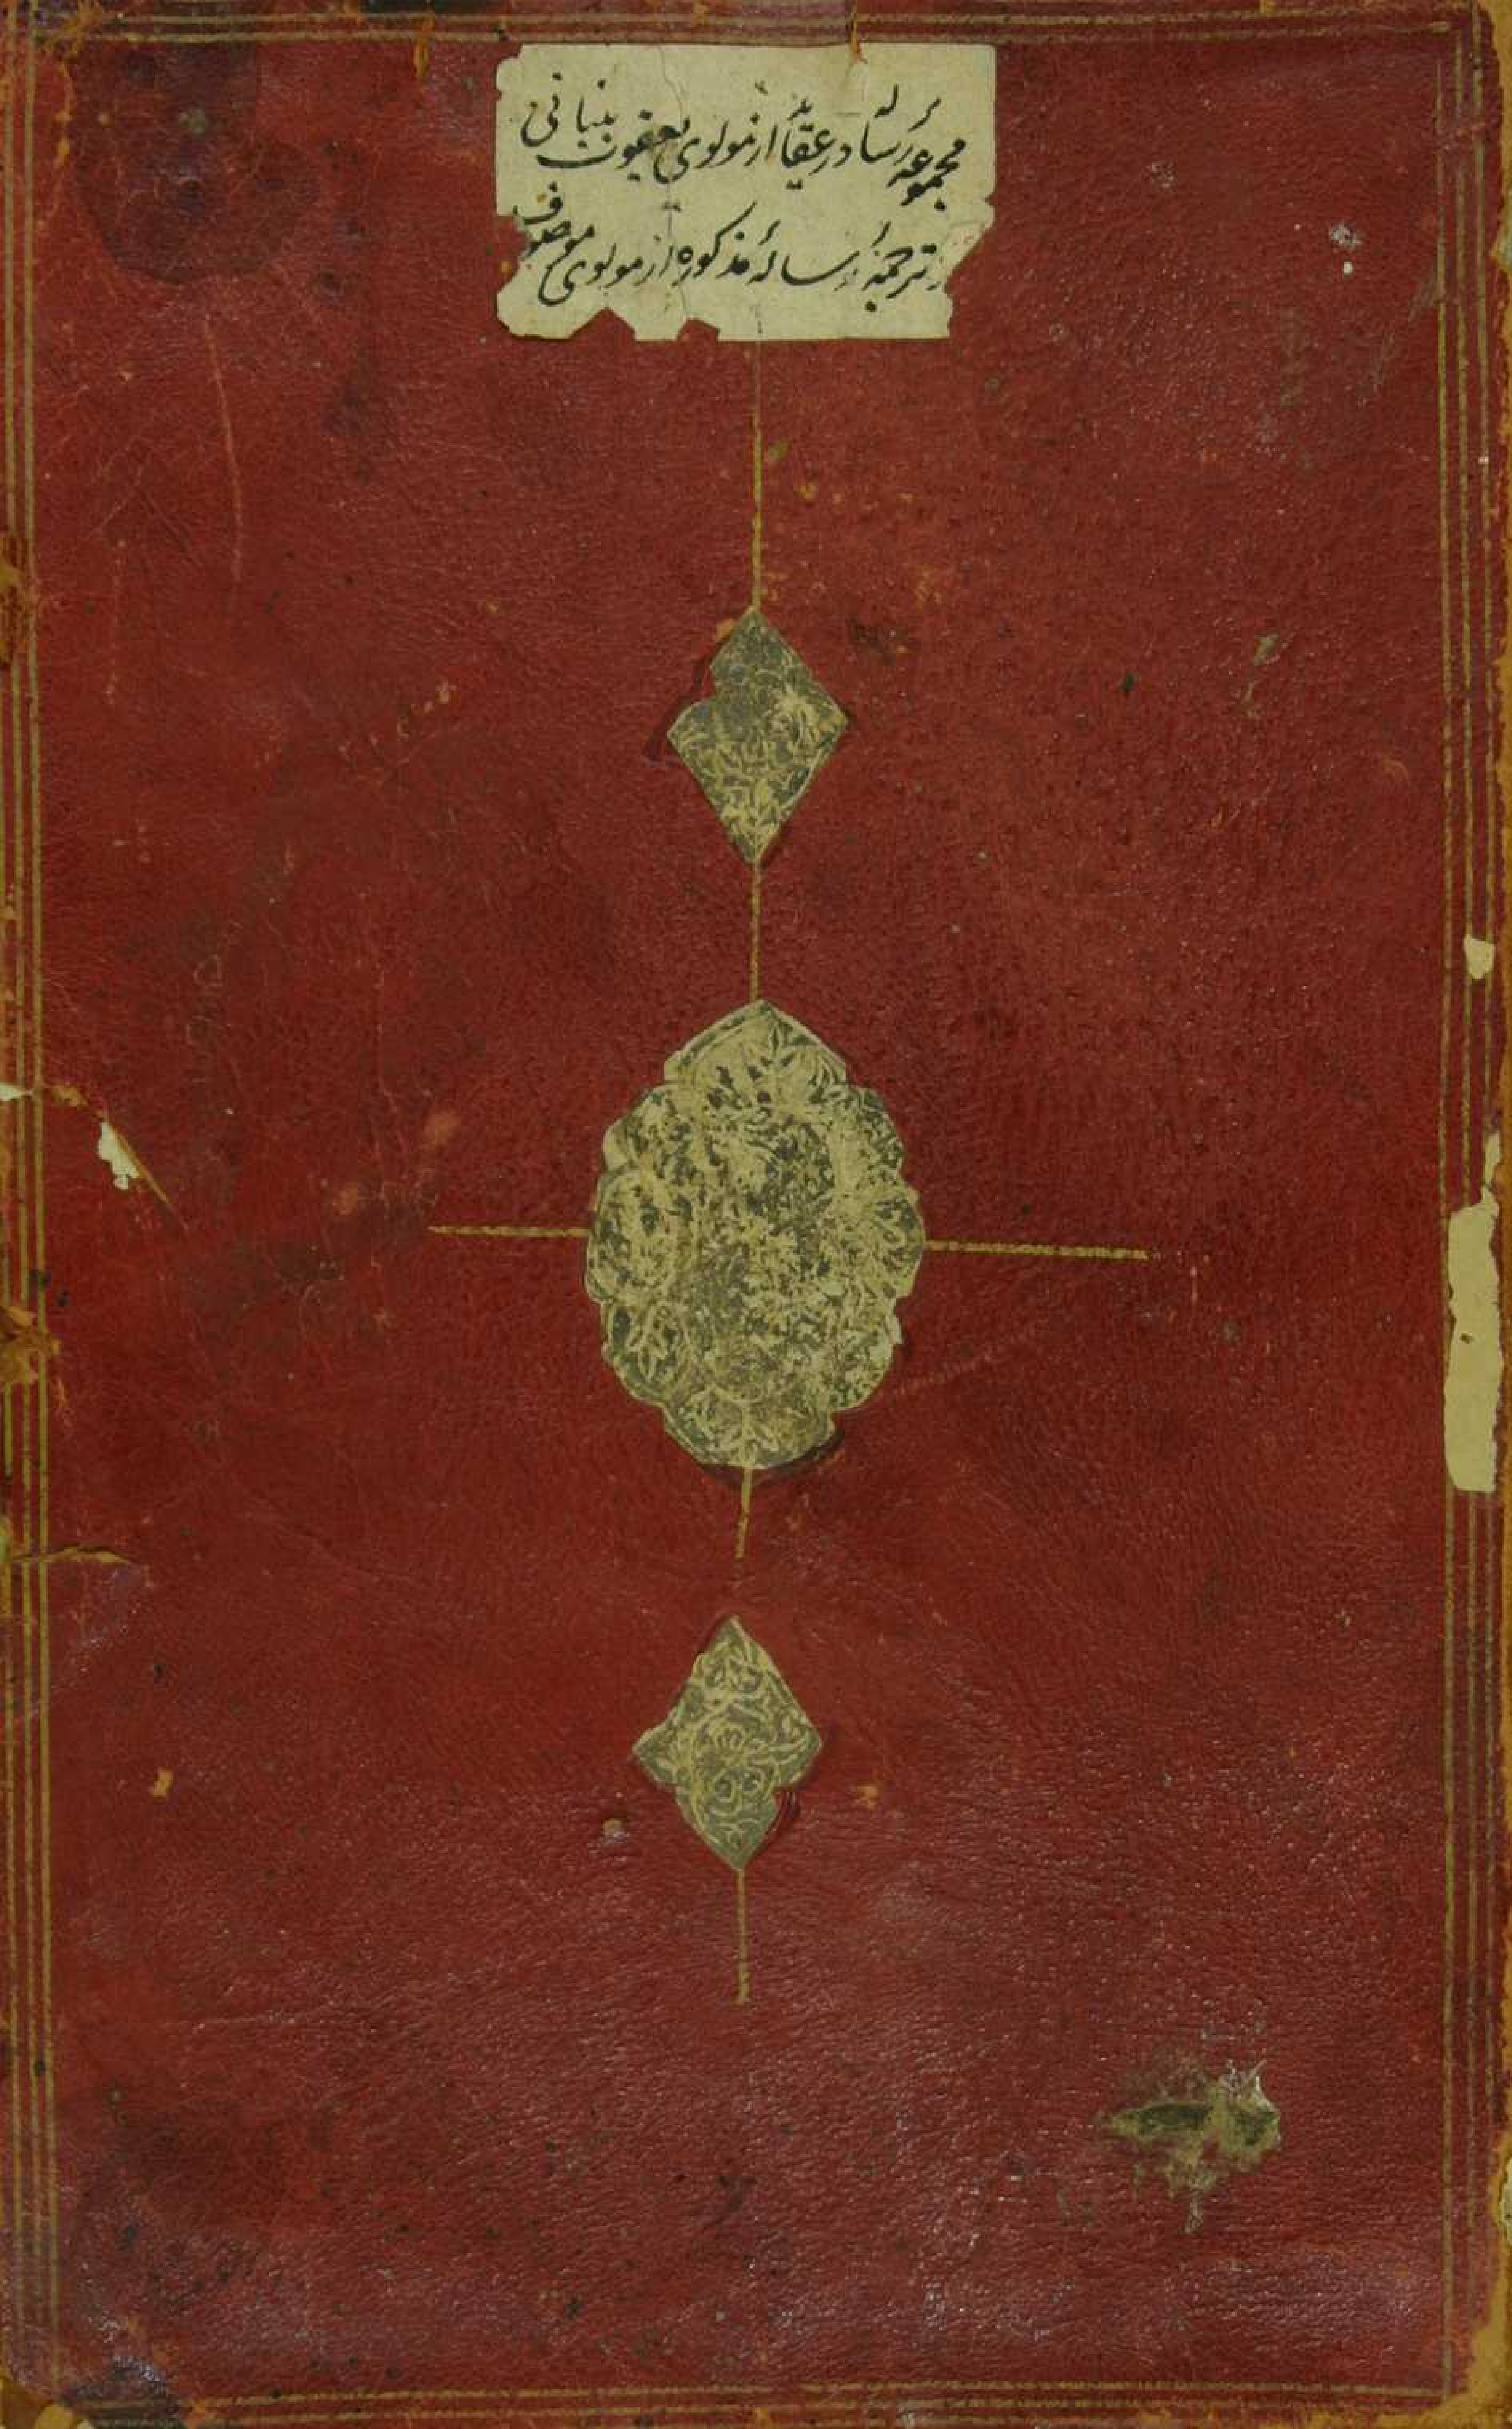 مجموعه رساله در عقائد از مولوی یعقوب بنبانی
ترجمهٔ رسالهٔ مذکوره از مولوی موصوف